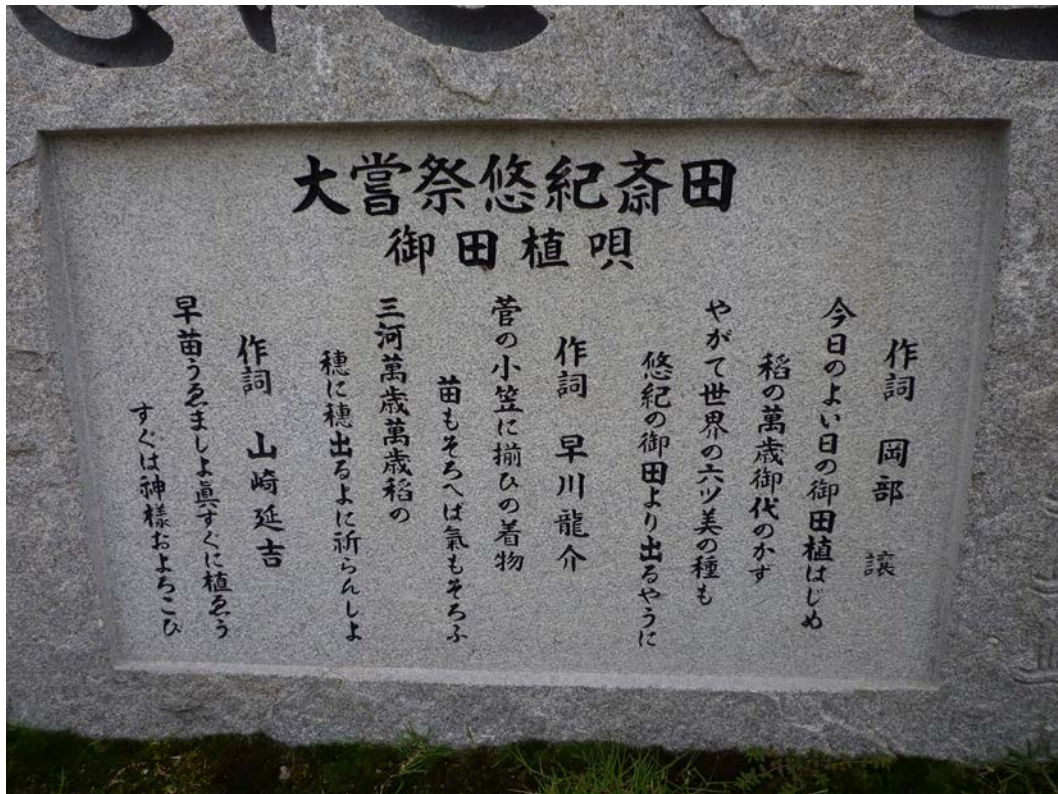 大嘗祭悠紀斎田
御田植唄
作詞 岡部 譲
今日のよい日の御田植はじめ
稲の萬歳御代のかず
やがて世界の六ツ美の種も
悠紀の御田より出るやうに
作詞 早川龍介
菅の小笠に揃ひの着物
苗もそろへば氣もそろふ
三河萬歳萬歳稲の
穂に穂出るよに祈らんしよ
作詞 山崎延吉
早苗うゑましよ眞すぐに植ゑう
すぐは神様およろこひ